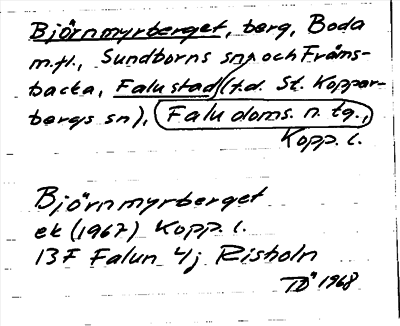 Björnmyrberget, berg, Boda
m.fl., Sundborns sn, och Främs-
backa, Falu stad (t.d. St. Koppar-
bergs sn), Falu doms. n. tg.,
Kopp. l.
Björnmyrberget
ek (1967) Kopp. l.
13F Falun 4j Risholn
TÖ 1968